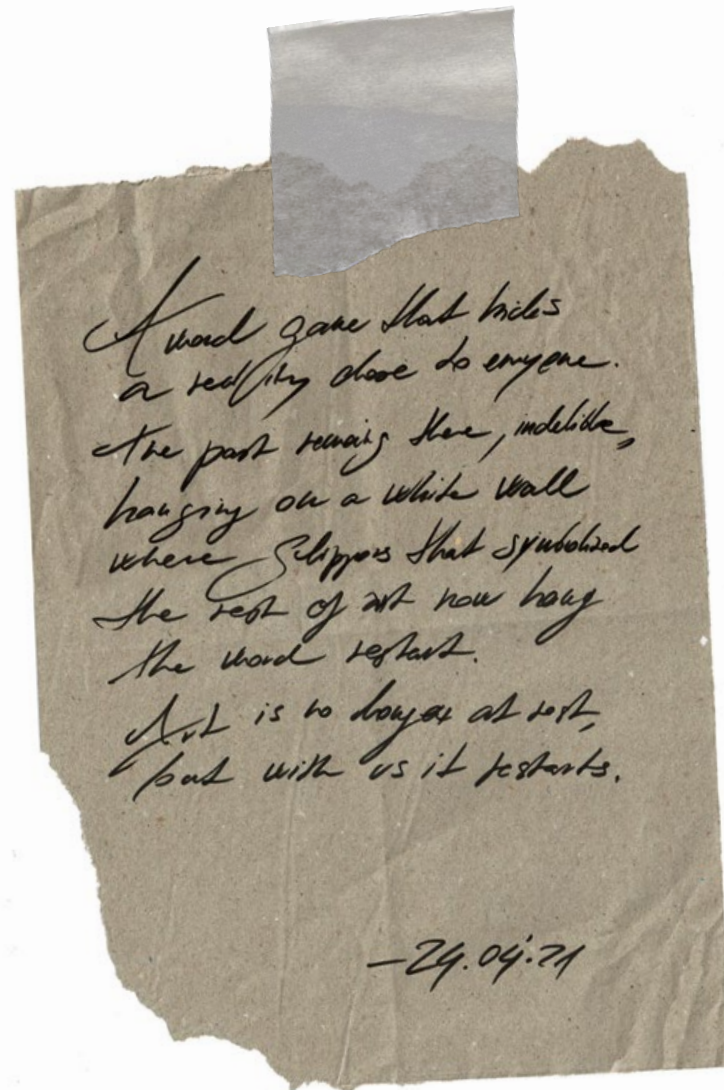 A word game that hides
a reality close to everyone.
The past remains there, indelible,
hanging on a white wall
where Slippers that symbolized
the rest of art now hang
the word restart.
Art is no longer at rest,
but with us it restarts.
-24.04.21